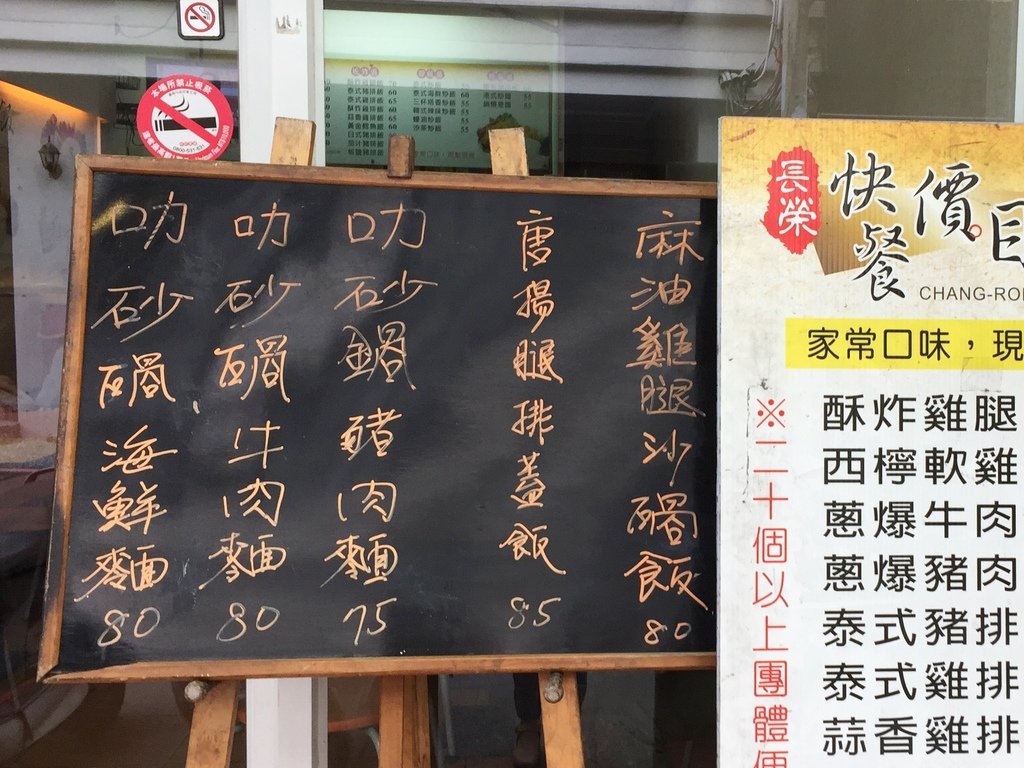 本場所禁止吸菸
0800-531-531
麻油雞腿沙鍋飯
80
唐揚腿排蓋飯
85
叻砂鍋豬肉麵
75
叻砂鍋牛肉麵
80
叻砂鍋海鮮麵
80
長榮
快餐
價目
CHANG-RO
家常口味，現
※二十個以上團體便
酥炸雞腿
西檸軟雞
蔥爆牛肉
蔥爆豬肉
泰式豬排
泰式雞排
蒜香雞排